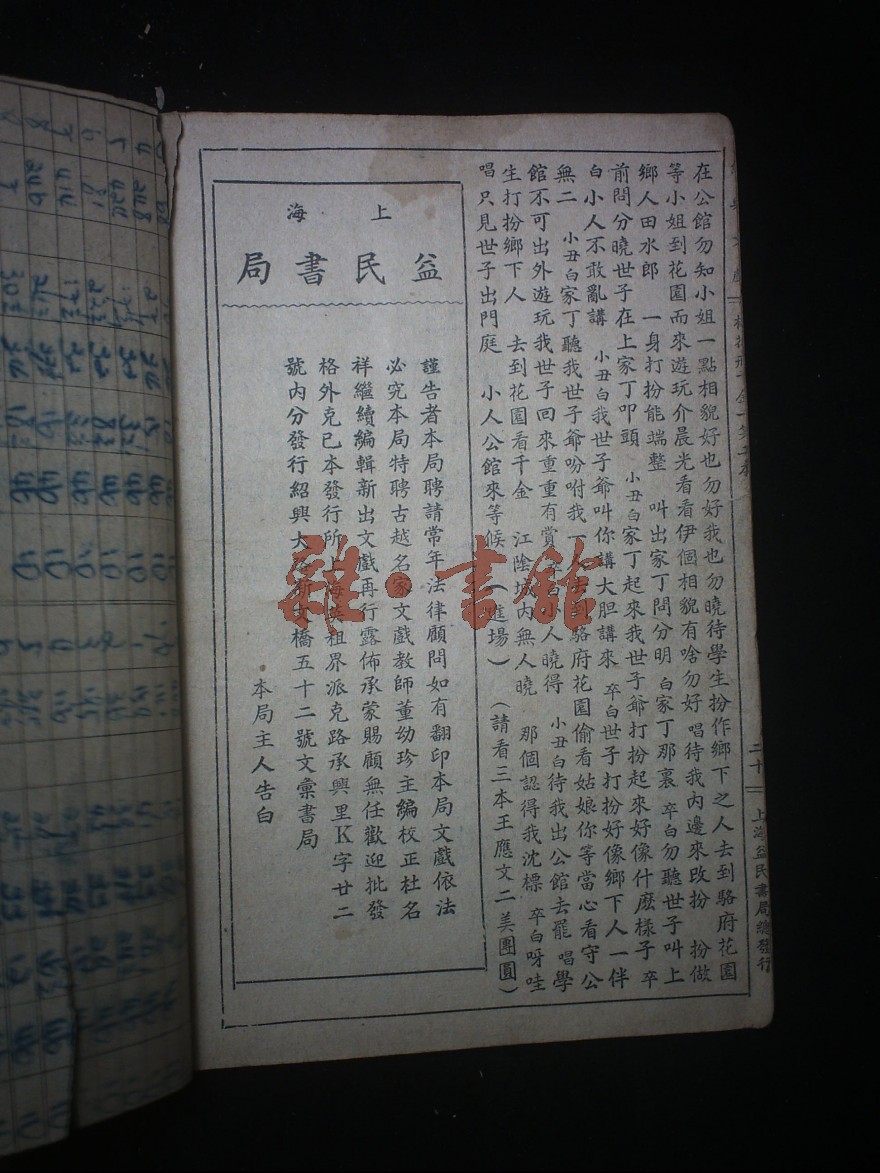 在公館勿知小姐一點相貌好也勿好我也勿曉待學生扮作鄉下之人去到駱府花園
等小姐到花園而來遊玩介晨光看看伊個相貌有啥勿好 唱待我內邊來改扮 扮做
鄉人田水郎 一身打扮能端整 叫出家丁問分明 白家丁那裏 卒白勿聽世子叫上
前問分曉世子在上家丁叩頭 小丑白家丁起來我世子爺打扮起來好像什麽樣子 卒
白小人不敢亂講 小丑白我世子爺叫你講大胆講來 卒白世子打扮好像鄉下人一伴
無二 小丑白家丁聽我世子爺吩咐我一人去到駱府花園偷看姑娘你等當心看守公
館不可出外遊玩我世子回來重重有賞 卒白小人曉得 小丑白待我出公館去罷 唱學
生打扮鄉下人 去到花園看千金 江陰城內無人曉 那個認得我沈標 卒白呀哇
唱只見世子出門庭 小人公館來等候(進場) (請看三本王應文二美團圓)
二十
上海益民書局總發行
上海
益民書局
謹告者本局聘請常年法律顧問如有翻印本局文戲依法
必究本局特聘古越名家文戲教師董幼珍主編校正杜名
祥繼續編輯新出文戲再行露佈承蒙賜顧無任歡迎批發
格外克已本發行所上海 租界派克路承興里K字廿二
號內分發行紹興大 新文橋五十二號文彙書局
本局主人告白
雜·書館